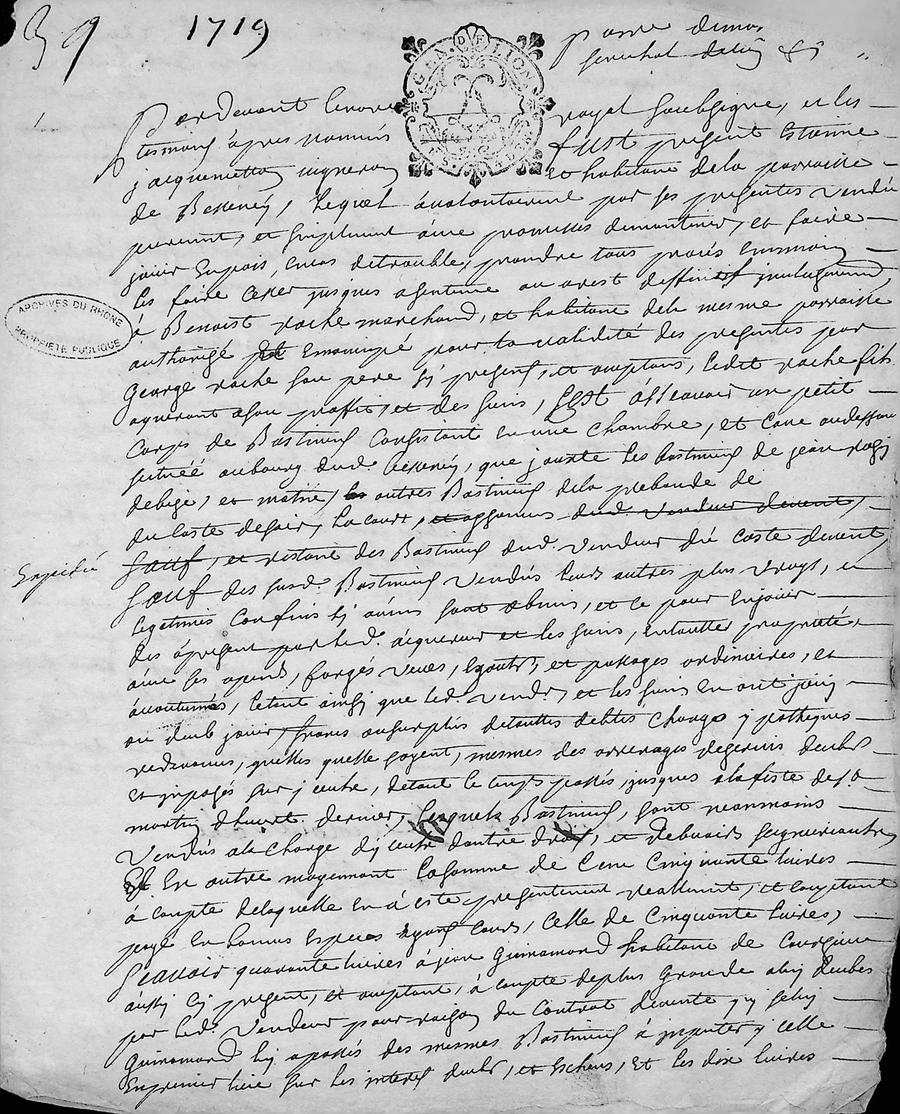 39 1719
GEN. DE LION
Pardevant le no.re royal soubsigné, et les
tesmoins apres nommés fust present Estienne
Jacquemetton vigneron et habitant de la parroisse
de Besseney, lequel a vollontairement par ses presentes vendu
purement, et simplement avec promesses de maintenir, et faire
jouir en paix, en cas de trouble, prendre tous procés en main
les faire cesser jusques a sentence ou arest deffinitif inclusivement
à Benoist rache marchand, et habitant de la mesme parroisse
authorizé et emancipé pour la validité des presentes par
George rache son pere cy present, et acceptant, ledit rache fils
aquerant a son proffit, et des siens, Sçest à sçeavoir un petit
corps de Bastiment consistant en une chambre, et cave au dessous
scituée au bourg dud. Bessenéy, que jouxte les bastiments de jean
de bize, et matin, les autres Bastiments de la prebande de
du costé de soir, la cour, et appartenances dud. vendeur devent,
Expedié
sauf, et restant des Bastiments dud. vendeur du costé de vent
sauf des susd. Bastiments vendus leurs autres plus vrays, et
legitimes confins sy aucuns sont obmis, et ce pour en jouir
des apresent par led. aquereur et les siens, en toutte proprieté,
avec ses aisances, forges, veues, esgouts, et passages ordinaires, et
accoutumés, le tout ainsy que led. vendr. et les siens en ont jouy
ou deub jouir, francs au surplus de touttes debtes charges ypotheques
redevances, quelles quelle soyent, mesmes des arrerages de servis deubs
et imposés sur yceux, de tout le temps passé jusques a la feste de St.
martin d'huert. dernier, lesquels Bastiments, sont neanmoins
Vendus a la charge d'yceux d'autre droit, et debvoirs seigneuriaux
Et en outre moyennant la somme de cent cinquante livres
à compte de laquelle en a esté presentement reallement, et comptant
payé en bonnes especes ayant cours, celle de cinquante livres,
Sçeavoir quarante livres à jean Guinamard habitant de Courzieu
aussy cy present, et acceptant, à compte de plus grande a luy deubes
par led. Vendeur pour raison du contrat de vente qu'y celuy
Guinamard luy a passé des mesmes Bastiments à imputer ycelle
en premier lieu sur les interets deubs, et escheus, et les dix livres
ARCHIVES DU RHONE
PROPRIÉTÉ PUBLIQUE